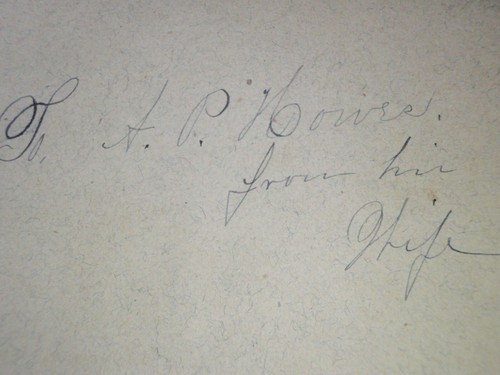 To, A. P. Howse.
from his
Wife